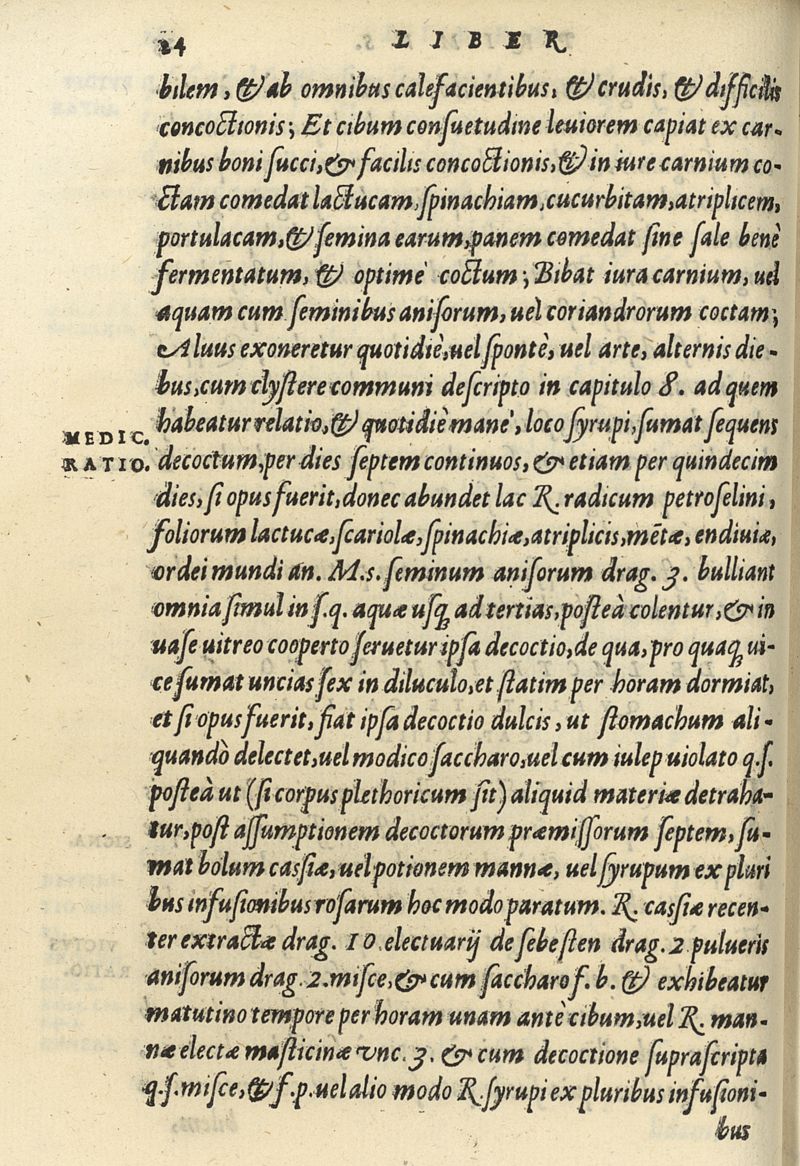 24 LIBER
bilem, & ab omnibus calefacientibus, & crudis, & difficilis
concoctionis; Et cibum consuetudine leuiorem capiat ex car-
nibus boni succi, & facilis concoctionis, & in iure carnium co-
ctam comedat lactucam, spinachiam, cucurbitam, atriplicem,
portulacam, & semina earum, panem comedat sine sale benè
fermentatum, & optimè coctum; Bibat iura carnium, uel
aquam cum seminibus anisorum, uel coriandrorum coctam;
Aluus exoneretur quotidiè, uel spontè, uel arte, alternis die-
bus, cum clystere communi descripto in capitulo 8. ad quem
habeatur relatio, & quotidiè manè, loco syrupi, sumat sequens
MEDIC.
RATIO.
decoctum, per dies septem continuos, & etiam per quindecim
dies, si opus fuerit, donec abundet lac ℞. radicum petroselini,
foliorum lactucæ, scariolæ, spinachiæ, atriplicis, mētæ, endiuiæ,
ordei mundi an. M.s. seminum anisorum drag. 3. bulliant
omnia simul in s.q. aquæ usq; ad tertias, posteà colentur, & in
uase uitreo cooperto seruetur ipsa decoctio, de qua, pro quaq; ui-
ce sumat uncias sex in diluculo, et statim per horam dormiat,
et si opus fuerit, fiat ipsa decoctio dulcis, ut stomachum ali-
quandò delectet, uel modico saccharo, uel cum iulep uiolato q.s.
posteà ut (si corpus plethoricum sit) aliquid materiæ detraha-
tur, post assumptionem decoctorum præmissorum septem, su-
mat bolum cassiæ, uel potionem mannæ, uel syrupum ex pluri
bus infusionibus rosarum hoc modo paratum. ℞. cassiæ recen-
ter extractæ drag. 10. electuarij de sebesten drag. 2 pulueris
anisorum drag. 2. misce, & cum saccharo f. b. & exhibeatur
matutino tempore per horam unam antè cibum, uel ℞. man-
næ electæ masticinæ vnc. 3. & cum decoctione suprascripta
q.s. misce, & f.p. uel alio modo ℞. syrupi ex pluribus infusioni-
bus